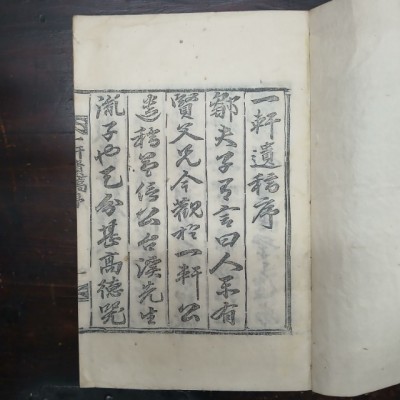 一軒遺稿序
鄒夫子有言曰人樂有
賢父兄今觀於一軒公
遺稿益信公台溪先生
胤子也天分甚高德
軒遺稿序